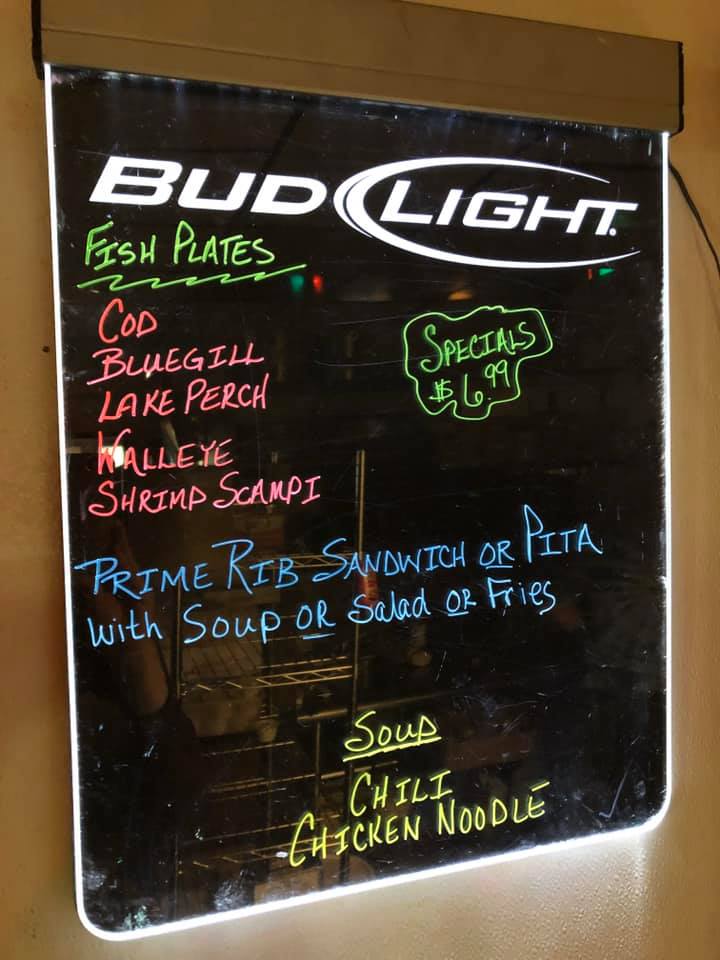 BUD LIGHT.
FISH PLATES
COD
BLUEGILL
LAKE PERCH
WALLEYE
SHRIMP SCAMPI
SPECIALS
$ 6.99
PRIME RIB SANDWICH OR PITA
with Soup OR Salad OR Fries
SOUP
CHILI
CHICKEN NOODLE